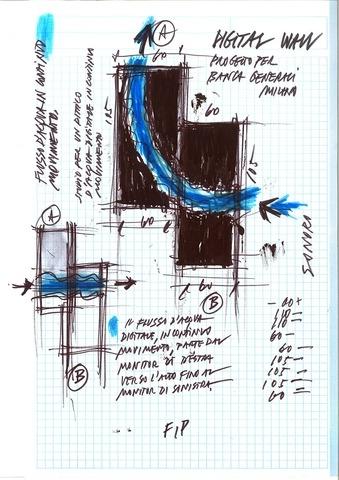 DIGITAL WALL
PROGETTO PER
BANCA GENERALI
MILANO
A
60
105
60
105
60
60
B
SONORA
FLUSSO D'ACQUA IN CONTINUO
MOVIMENTO.
STUDIO PER UN DITTICO
D'ACQUA DIGITALE IN CONTINUO
MOVIMENTO
A
B
IL FLUSSO D'ACQUA
DIGITALE, IN CONTINUO
MOVIMENTO, PARTE DAL
MONITOR DI DESTRA
VERSO L'ALTO FINO AL
MONITOR DI SINISTRA.
60 —
105 —
105 =
60 =